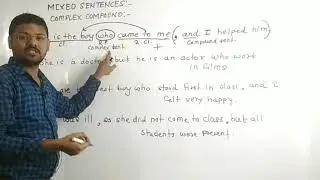 MIXED SENTENCES:-
COMPLEX COMPOUND:-
is the boy (who) came to me, and I helped him,
cl. 2.cl. compound sent.
complex sent. +
he is a doctor, but he is an actor who work
in films
boy who stood first in class, and I
felt very happy.
was ill, so she did not come to class, but all
students were present.